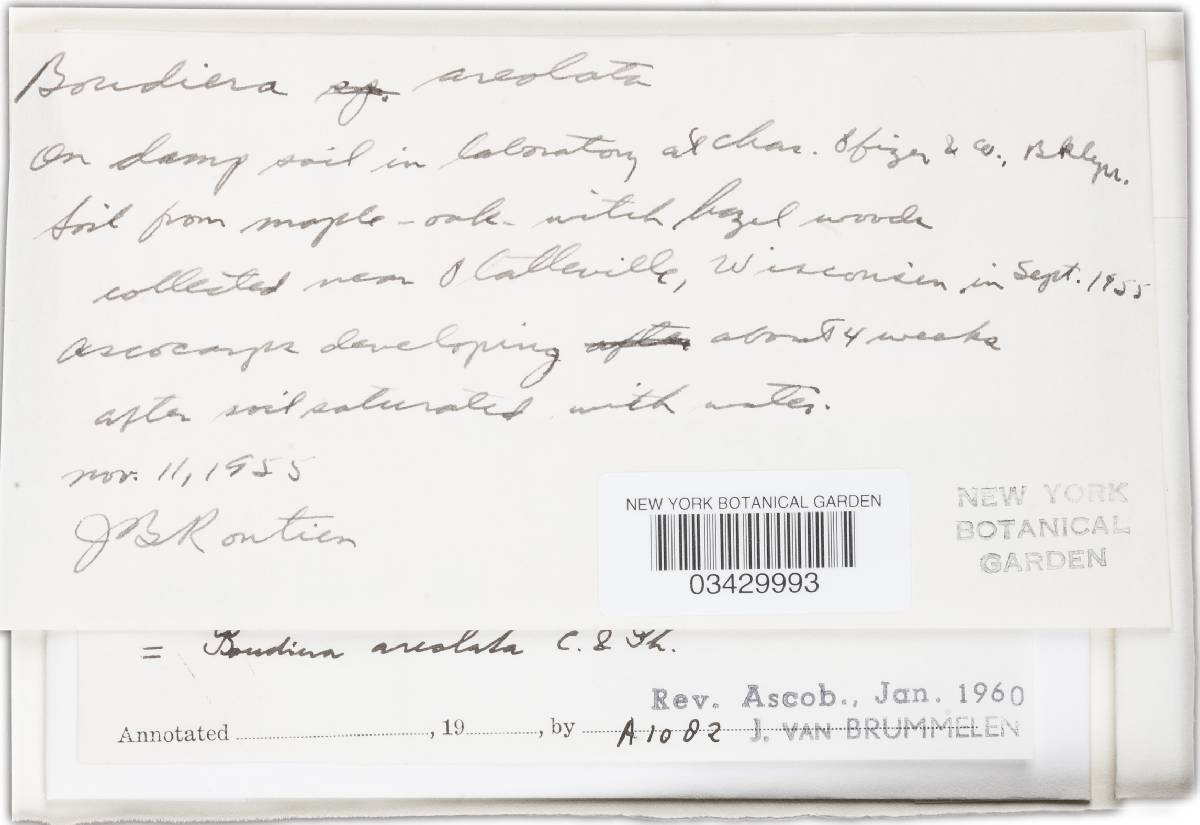 Boudiera sp. areolata
On damp soil in laboratory at Chas. Pfizer & Co., Bklyn.
Soil from maple-oak-witch hazel woods
collected near Platteville, Wisconsin in Sept. 1955
Ascocarps developing after about 4 weeks
after soil saturated with water.
Nov. 11, 1955
JB Routien
NEW YORK BOTANICAL GARDEN
03429993
NEW YORK
BOTANICAL
GARDEN
= Boudiera areolata C. & Ph.
Rev. Ascob., Jan. 1960
Annotated , 19 , by A1082 J. VAN BRUMMELEN